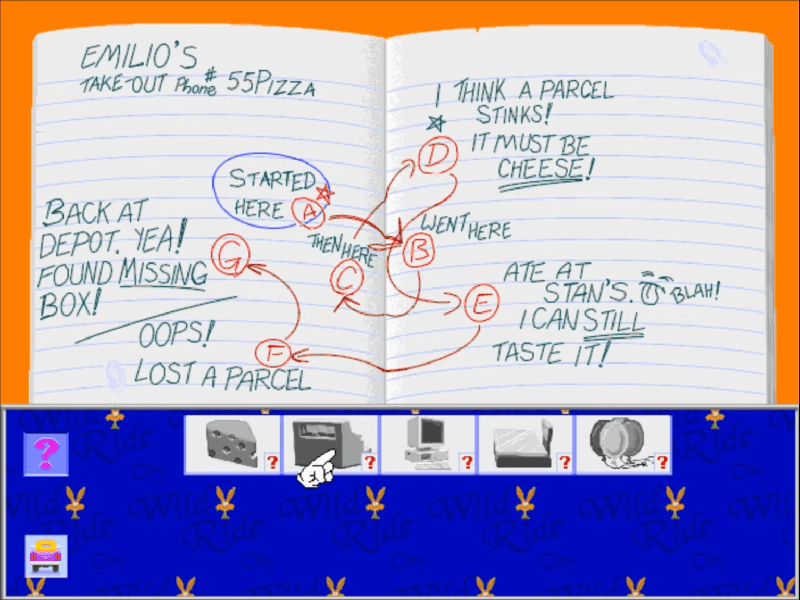 EMILIO'S
TAKE-OUT Phone # 55PIZZA
I THINK A PARCEL
STINKS!
IT MUST BE
CHEESE!
D
STARTED
HERE A
WENT HERE
THEN HERE
B
C
BACK AT
DEPOT. YEA!
FOUND MISSING
BOX!
G
OOPS!
LOST A PARCEL
F
E
ATE AT
STAN'S. BLAH!
I CAN STILL
TASTE IT!
?
? ? ? ? ?
Wild Ride
Wild Ride
Wild Ride
Wild Ride
Wild Ride